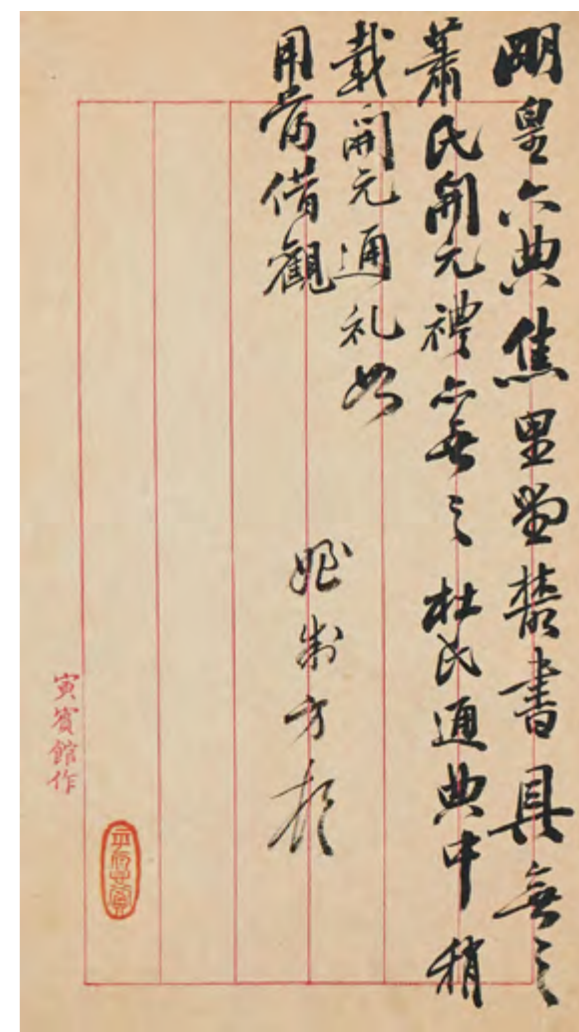 明皇六典焦里堂叢書具無之
蕭氏開元禮亦無之杜氏通典中稍
載開元通礼如
用需借觀
姪制方頓
寅賓館作